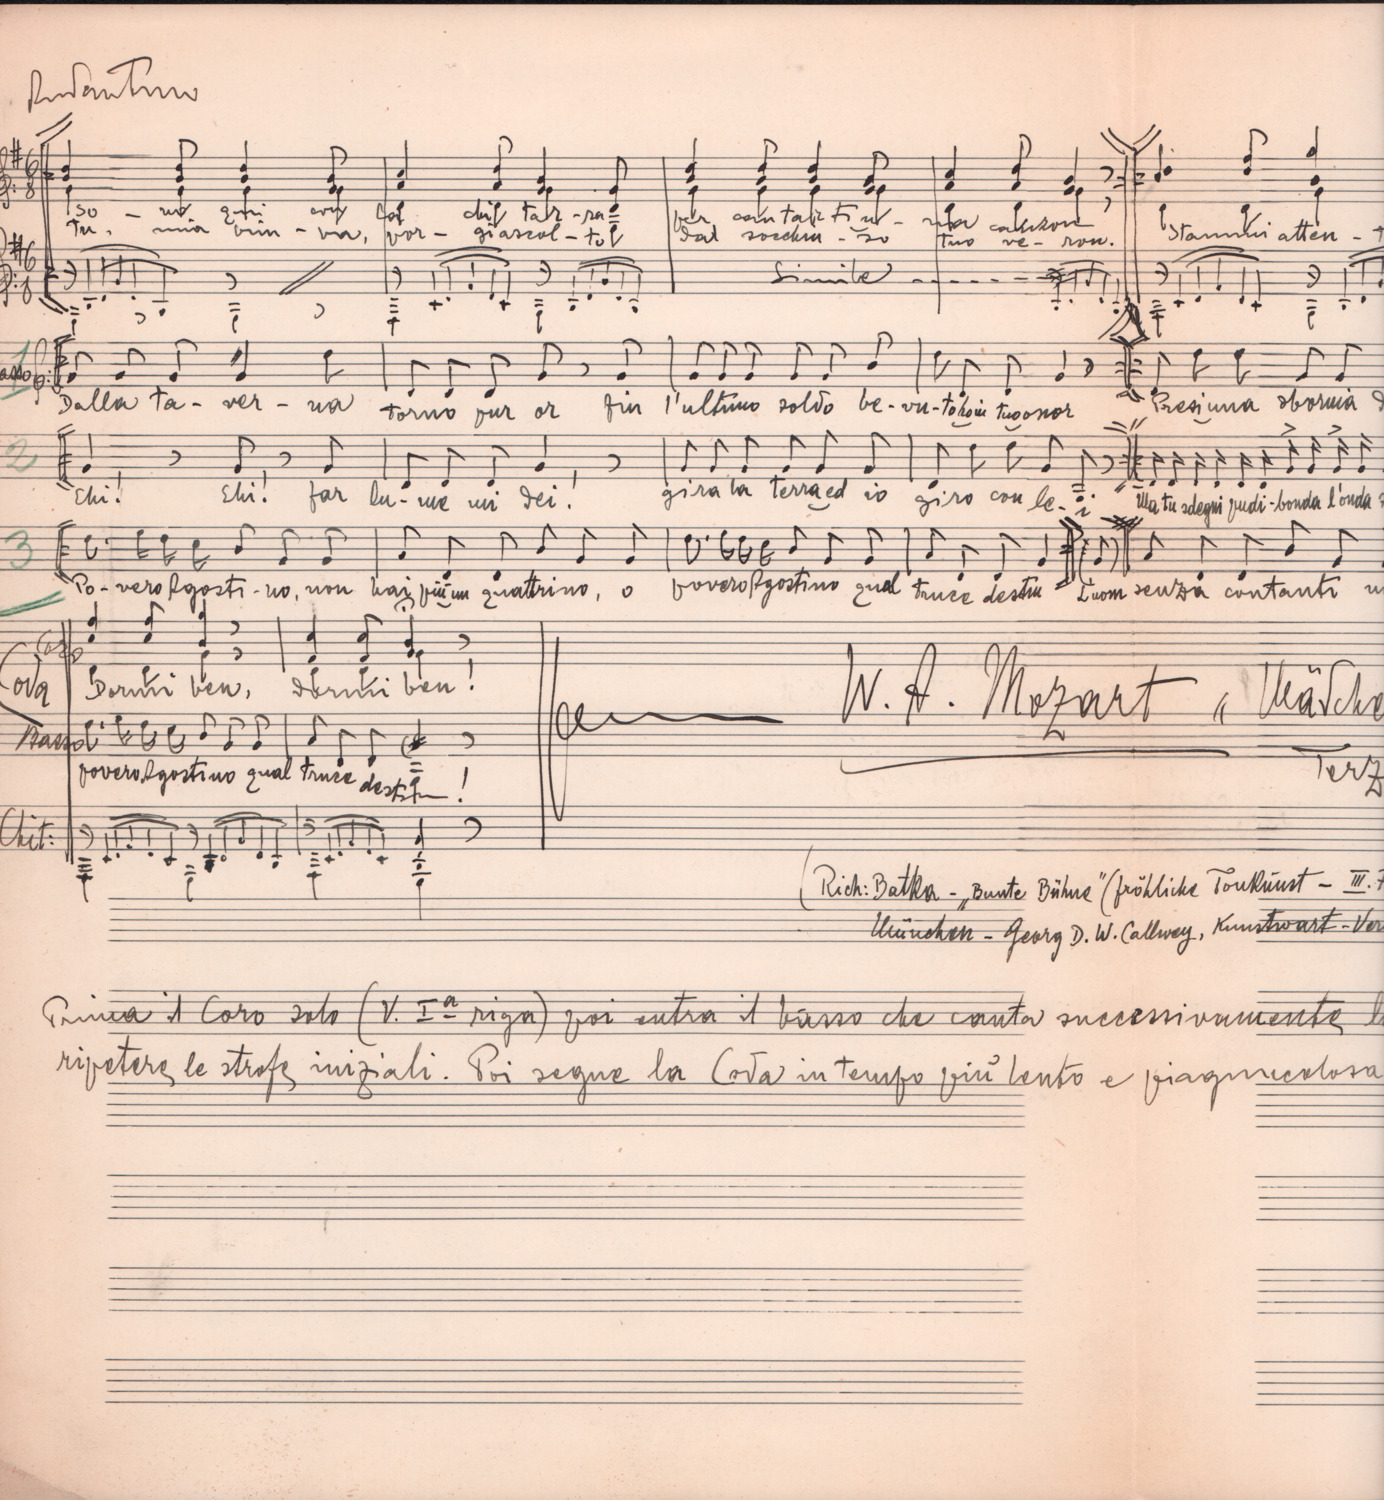 Andantino
So - no qui col chi tar - ra per cantarti u - na canzon
Tu, mia vin - na, por - gi ascol - to dal socchiu - so tuo ve - ron. Stammi atten -
Simile
1
Basso
Dalla ta - ver - na torno pur or fin l'ultimo soldo be - vu - to ho in tuo onor Presi una sbornia
2
Ehi! Ehi! far lu - me mi dei! gira la terra ed io giro con le - i Ma tu sdegni pudi - bonda l'onda
3
Po - vero Agosti - no, non hai più un quattrino, o povero Agostino qual truce destin L'uom senza contanti
Coda
Dormi ben, dormi ben!
W. A. Mozart „
Basso
povero Agostino qual truce destin!
Chit:
(Rich: Batka - „Bunte Bühne" (fröhliche Tonkunst - III.
München - Georg D. W. Callwey, Kunstwart -
Prima il Coro solo (V. Iª riga) poi entra il basso che canta successivamente
ripetere le strofe iniziali. Poi segue la Coda in tempo più lento e piagnucolosa